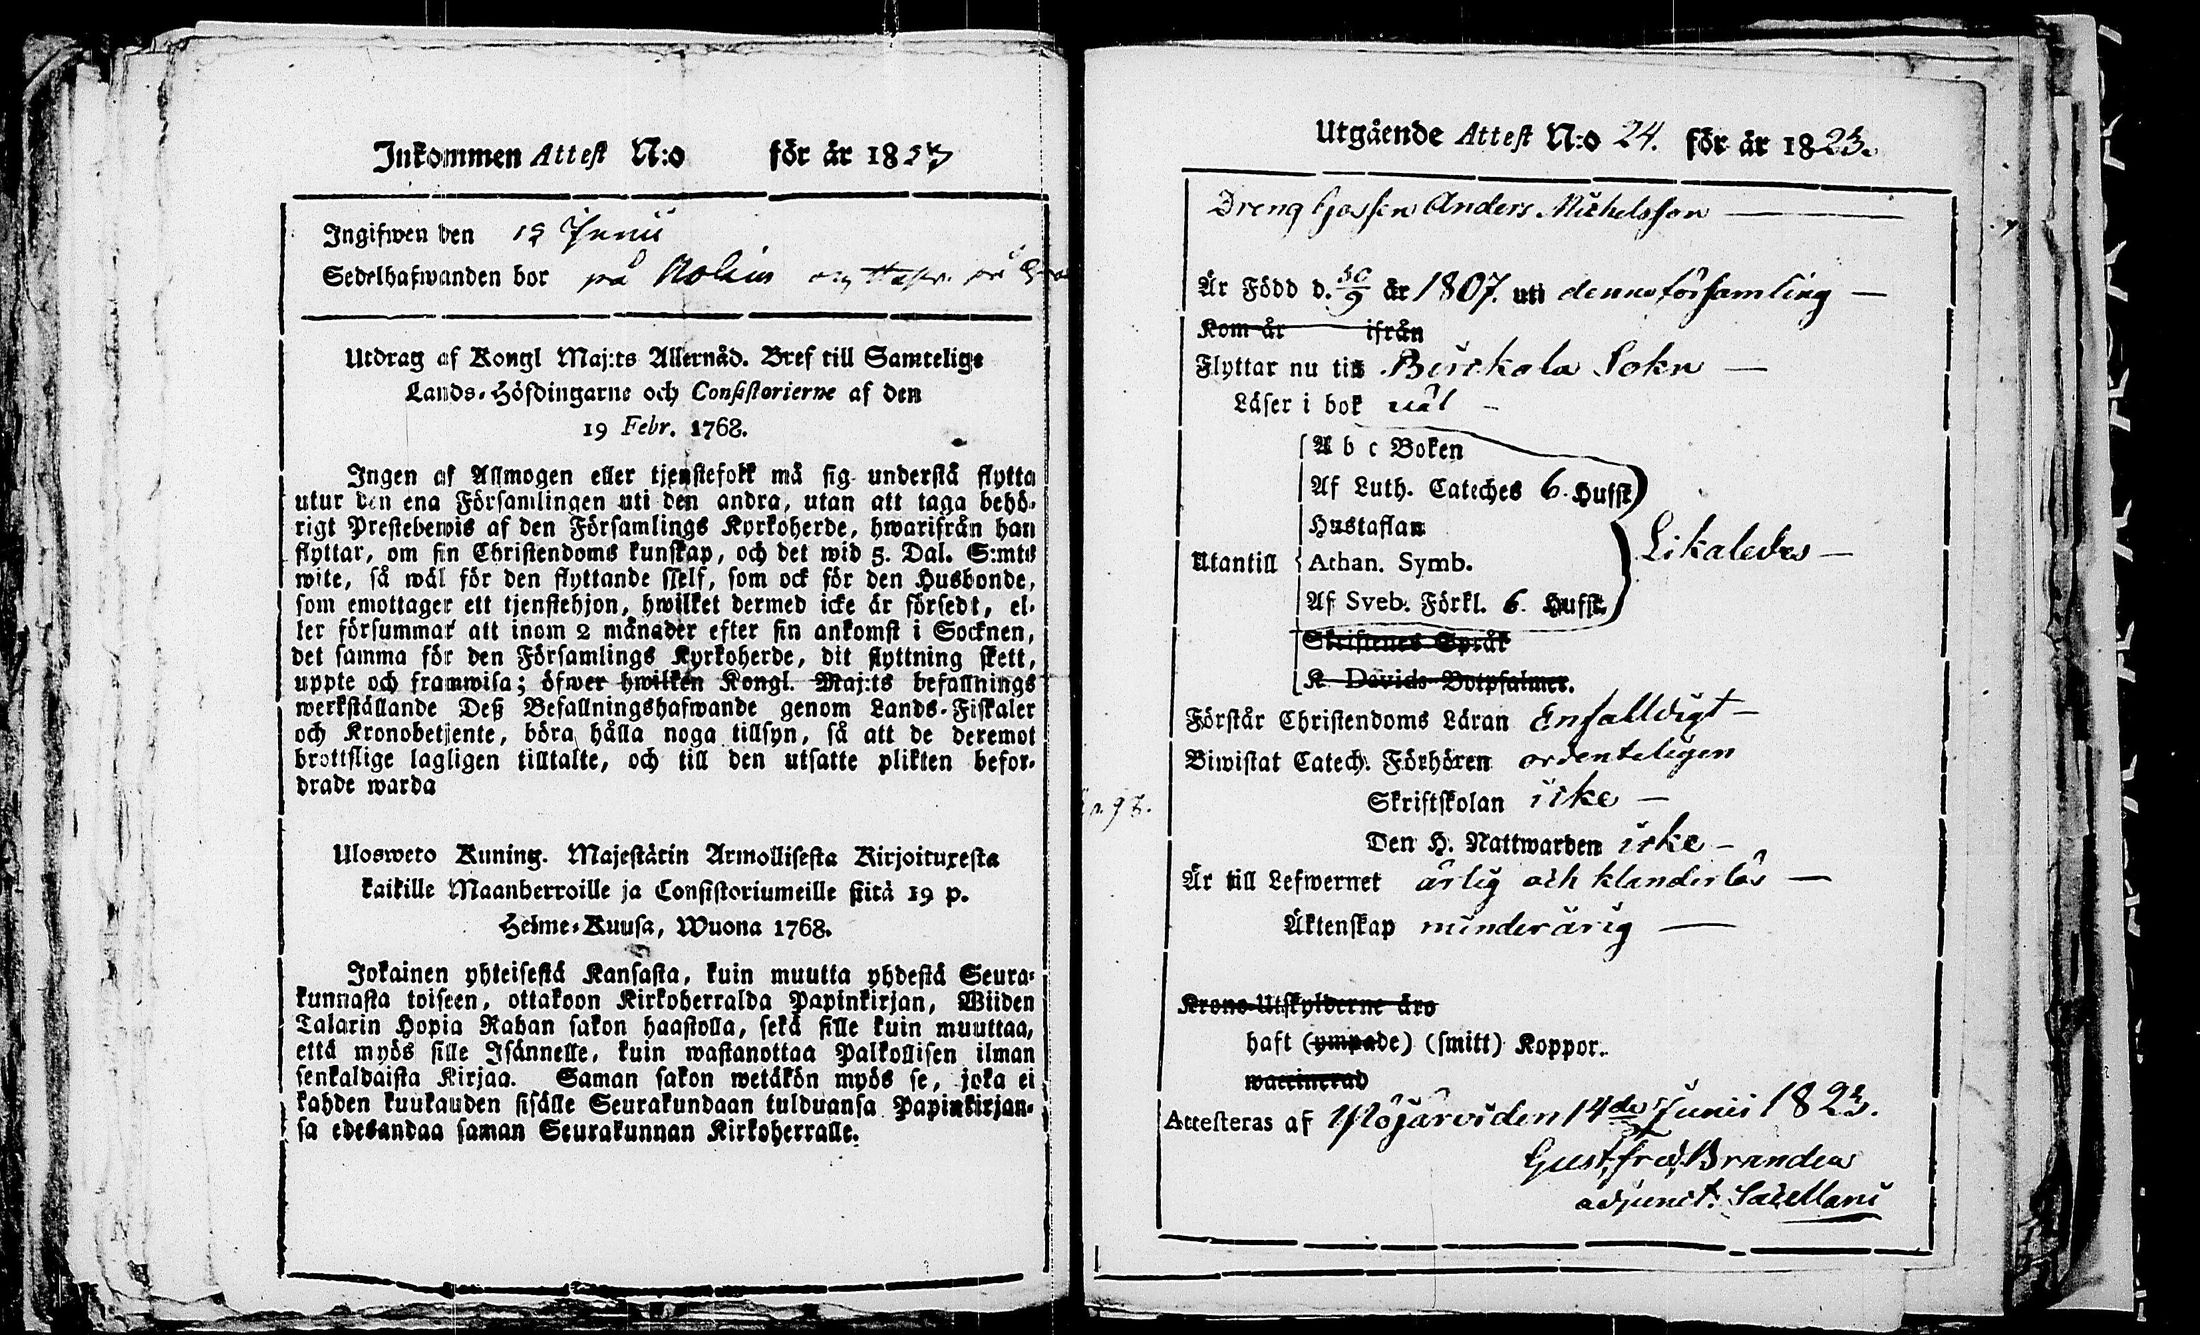 Inkommen Attest N:o för år 1823
Ingifwen den 15 Junii
Sedelhafwanden bor på
Utdrag af Kongl Maj:ts Allernåd. Bref till Samtelige
Lands-Höfdingarne och Consistorierne af den
19 Febr. 1768.
Ingen af Allmogen eller tjenstefolk må sig understå flytta
utur den ena Församlingen uti den andra, utan att taga behö-
rigt Prestebewis af den Församlings Kyrkoherde, hwarifrån han
flyttar, om sin Christendoms kunskap, och det wid 5. Dal. S:mts
wite, så wäl för den flyttande sself, som ock för den Husbonde,
som emottager ett tjenstehjon, hwilket dermed icke är försedt, el-
ler försummar att inom 2 månader efter sin ankomst i Socknen,
det samma för den Församlings Kyrkoherde, dit flyttning skett,
uppte och framwisa; öfwer hwilken Kongl. Maj:ts befallnings
werkställande Deß Befallningshafwande genom Lands-Fiskaler
och Kronobetjente, böra hålla noga tillsyn, så att de deremot
brottslige lagligen tilltalte, och till den utsatte plikten befor-
drade warda
Ulosweto Kuning. Majestätin Armollisesta Kirjoituxesta
kaikille Maanherroille ja Consistoriumeille siitä 19 p.
Helme-Kuusa, Wuona 1768.
Jokainen yhteisestä Kansasta, kuin muutta yhdestä Seura-
kunnasta toiseen, ottakoon Kirkoherralda Papinkirjan, Wiiden
Talarin Hopia Rahan sakon haastolla, sekä sille kuin muuttaa,
että myös sille Isännelle, kuin wastanottaa Palkollisen ilman
senkaldaista Kirjaa. Saman sakon wetäkön myös se, joka ei
kahden kuukauden sisälle Seurakundaan tulduansa Papinkirjan-
sa edesandaa saman Seurakunnan Kirkoherralle.
Utgående Attest N:o 24. för år 1823.
Dreng Gossen Anders Michelsson
Är Född d. 30/9 år 1807. uti denna församling
Kom år ifrån
Flyttar nu till Birckala Sokn
Läser i bok väl
A b c Boken
Af Luth. Cateches 6. Hufst
Hustaflan
Utantill Athan. Symb. Likaledes
Af Sveb. Förkl. 6. Hufst.
Skriftenes Språk
K. Davids Botpsalmer.
Förstår Christendoms Läran Enfalldigt
Biwistat Catech. Förhören ordenteligen
Skriftskolan icke
Den H. Nattwarden icke
Är till Lefwernet ärlig och klanderlös
Äktenskap minderårig
Krono-Utskylderne äro
haft (ympade) (smitt) Koppor.
waccinerad
Attesteras af Ylöjärvi den 14de Junii 1823.
Gust. Fred. Brander
adjunct. Sacellani